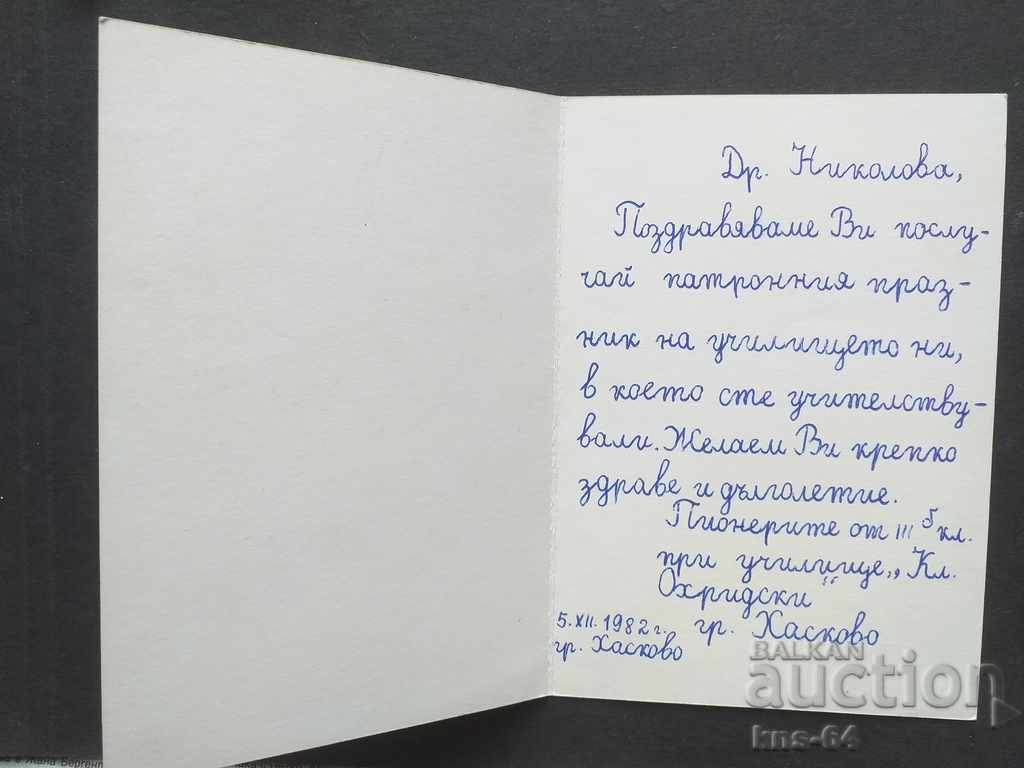 Др. Николова,
Поздравяваме Ви послу-
чай патронния праз-
ник на училището ни,
в което сте учителству-
вали. Желаем Ви крепко
здраве и дълголетие.
Пионерите от III б кл.
при училище „Кл.
Охридски“
5.XII.1982 г. гр. Хасково
гр. Хасково
BALKAN
auction
kns-64